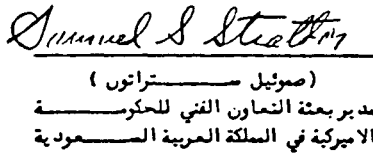 Samuel S Stratton
( صموئيل ستراتون )
مدير بعثة التعاون الفني للحكومة
الاميركية في المملكة العربية السعودية